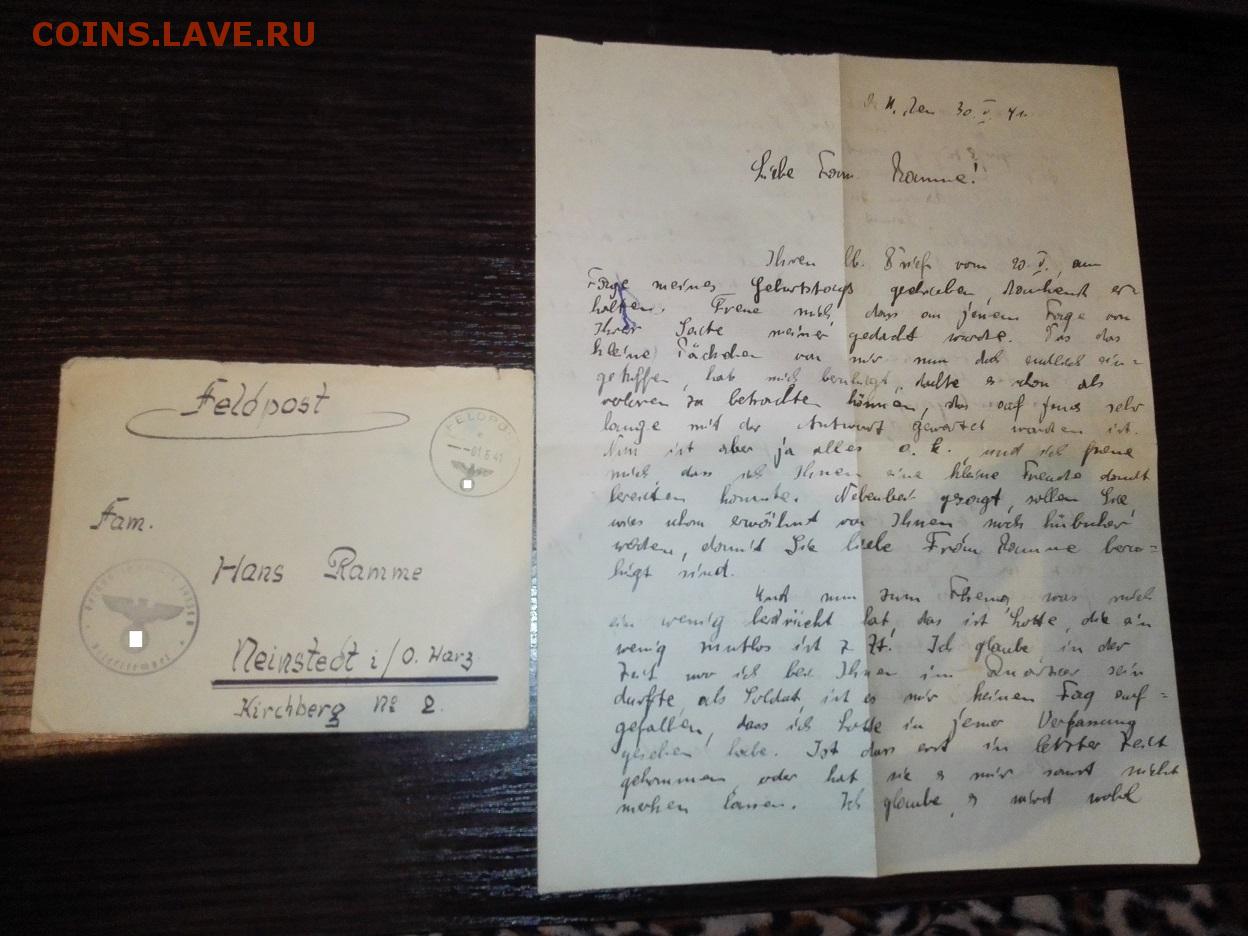 COINS.LAVE.RU
Feldpost
FELDPO
01.6.41
Fam.
Hans Ramme
Neinstedt i/O. Harz
Kirchberg № 2.
den 30. V. 41.
Liebe Fam. Ramme!
Ihren lb. Brief vom 20. V., am
Tage meines Geburtstags geschrieben, dankend er-
halten. Freue mich, dass an jenem Tage von
Ihrer Seite meiner gedacht wurde. Das das
kleine Päckchen von mir nun doch endlich ein-
getroffen, hat mich beruhigt, dachte es schon als
verloren zu betrachten können, das auf jenes sehr
lange mit der Antwort gewartet worden ist.
Nun ist aber ja alles o. k., und ich freue
mich, dass ich Ihnen eine kleine Freude damit
bereiten konnte. Nebenbei gesagt, sollen Sie
wie schon erwähnt von Ihnen noch hübscher
werden, damit Sie liebe Frau Ramme beru-
higt sind.
Und nun zum Thema, was mich
ein wenig bedrückt hat das ist Lotte, die ein
wenig mutlos ist z. Zt. Ich glaube, in der
Zeit wo ich bei Ihnen im Quartier sein
durfte, als Soldat, ist es mir keinen Tag auf-
gefallen, dass ich Lotte in jener Verfassung
gesehen habe. Ist das erst in letzter Zeit
gekommen oder hat sie es mir sonst nicht
merken lassen. Ich glaube, es wird wohl